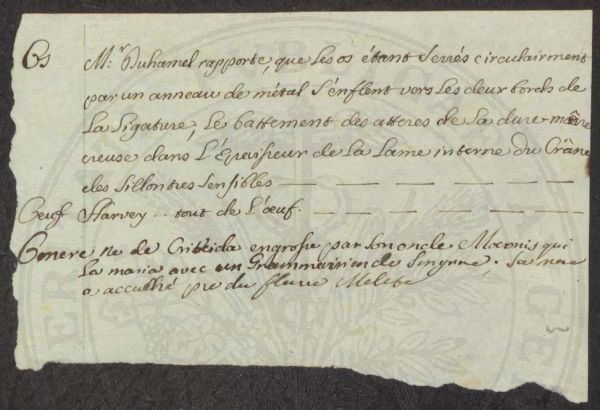 Os M.r Duhamel rapporte, que les os étant serrés circulairment
par un anneau de métal s'énflent vers les deux bords de
la Ligature, le battement des atteres de la dure mère
creuse dans l'Epaisseur de la Lame interne du Crâne
des sillon tres sensibles — — — — — —
Oeuf Harvey .. tout de l'œuf. — — — — — —
Omere ne de Criteida engrosse par son oncle Maonis qui
la maria avec un Grammairien de Smyrne. sa mere
a accuché pre du fleuve Melete